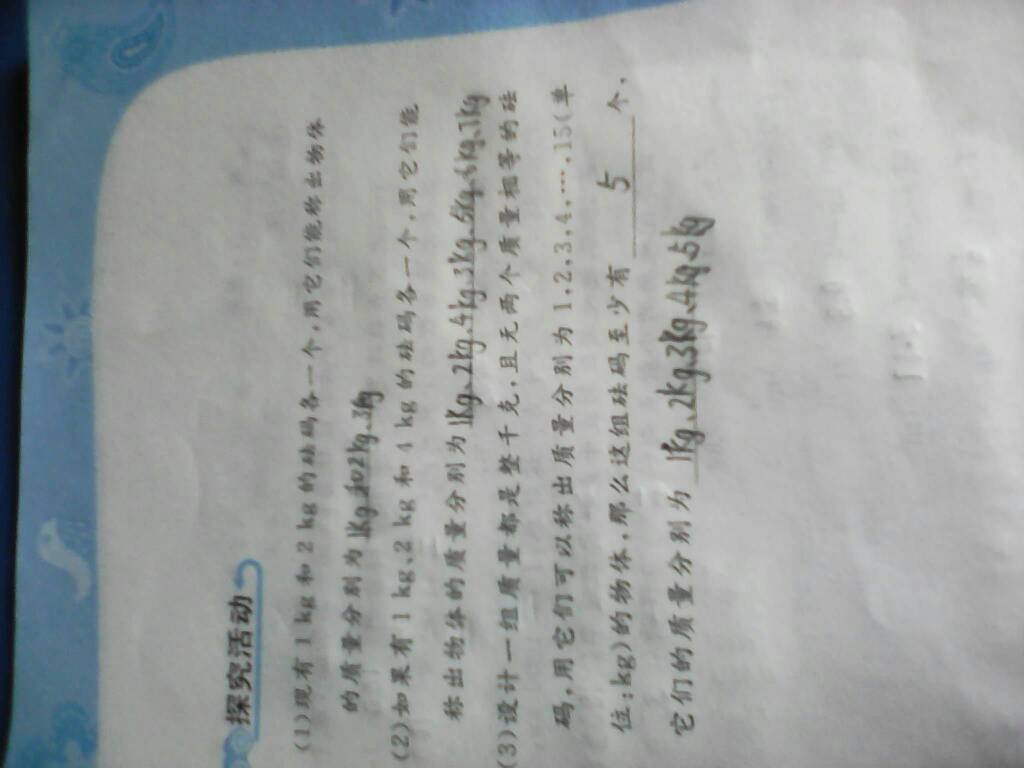 探究活动
(1)现有1 kg和2 kg的砝码各一个,用它们能称出物体
的质量分别为1kg、2kg、3kg
(2)如果有1 kg、2 kg和4 kg的砝码各一个,用它们能
称出物体的质量分别为1kg、2kg、4kg、3kg、5kg、6kg、7kg
(3)设计一组质量都是整千克,且无两个质量相等的砝
码,用它们可以称出质量分别为1,2,3,4,…,15(单
位:kg)的物体,那么这组砝码至少有 5 个,
它们的质量分别为 1kg、2kg、3kg、4kg、5kg